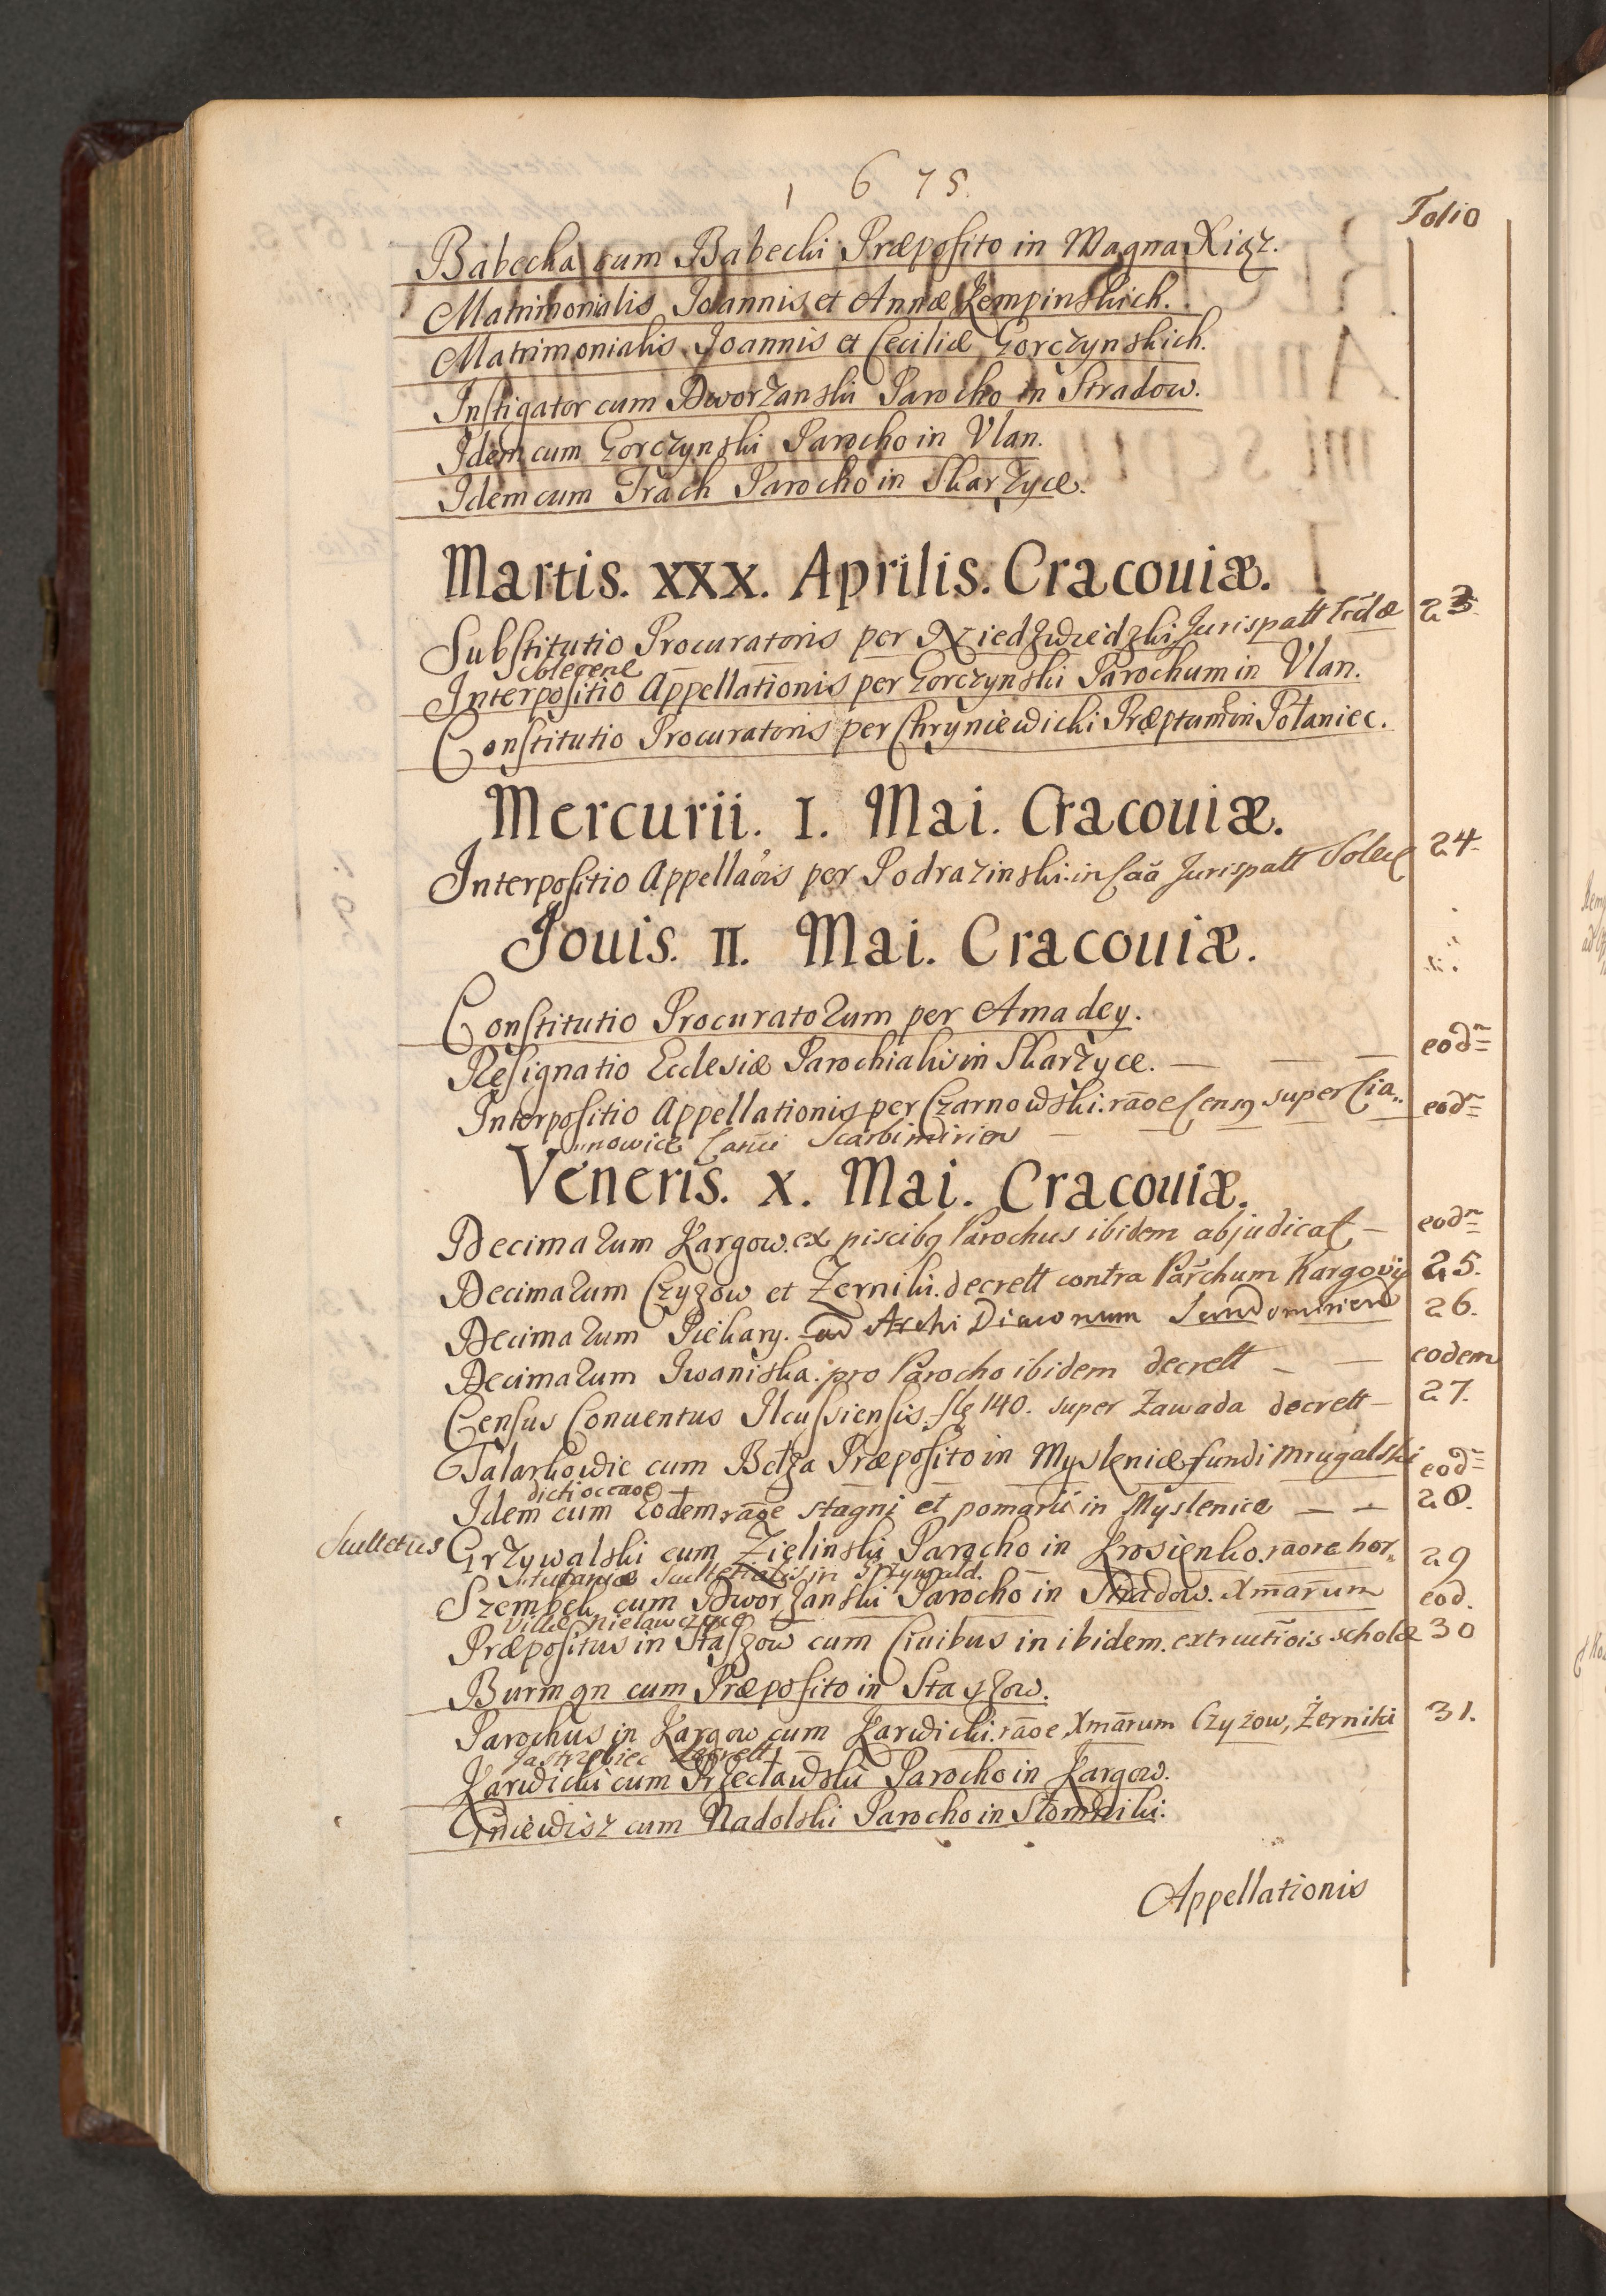 1 6 75
Folio
Babecka cum Babecki Præposito in Magna Xiąz.
Matrimonialis Joannis et Annæ Kempinskich.
Matrimonialis Joannis et Ceciliæ Gorczynskich.
Instigator cum Dworzanski Parocho in Stradow.
Idem cum Gorczynski Parocho in Vlan.
Idem cum Trach Parocho in Skarzyce.
Martis. XXX. Aprilis. Cracouiæ.
Substitutio Procuratoris per Niedzwiedzki Jurispatt 23.
Interpositio Appellationis per Gorczynski Parochum in Vlan.
Constitutio Procuratoris per Chryniewicki Præptum in Połaniec.
Mercurii. I. Mai. Cracouiæ.
Interpositio Appellaõis per Podrazinski in Caã Jurispatt Solec 24.
Jouis. II. Mai. Cracouiæ.
Constitutio Procuratorum per Amadey.
Resignatio Ecclesiæ Parochialis in Skarzyce. — — — eod~
Interpositio Appellationis per Czarnowski. rãoe Censq super Cia„ eod~
„nowice Scarbimirien
Veneris. X. Mai. Cracouiæ.
Decimarum Kargow. ex piscibq Parochus ibidem abjudicat — eod~
Decimarum Czyzow et Zerniki. decrett contra Parchum Kargoviję 25.
Decimarum Piekary. ad Archi Diaconum Sandomirien 26.
Decimarum Iwaniska. pro Parocho ibidem decrett — — eodem
Census Conuentus Ilcussiensis. 140. super Zawada decrett — 27.
Talarkowic cum Bełza Præposito in Myslenice fundi Mrugalski eod~
dicti occaõe
Idem cum Eodem rãoe stagni et pomarii in Myslenice — — 28.
Scultetus Grzywalski cum Zielinski Parocho in Krosienko. rãone hor„ 29
scultetialis in Grzywald.
Szembek cum Dworzanski Parocho in Stradow. Xmarum eod.
Villæ
Præpositus in Staszow cum Ciuibus in ibidem. extructiois scholæ 30
Burman cum Præposito in Staszow.
Parochus in Kargow cum Karwicki. rãoe Xmãrum Czyżow, Żerniki 31.
Jastrzębiec decrett
Karwicki cum Przecławski Parocho in Kargow.
Gniewisz cum Nadolski Parocho in Słomniki.
Appellationis